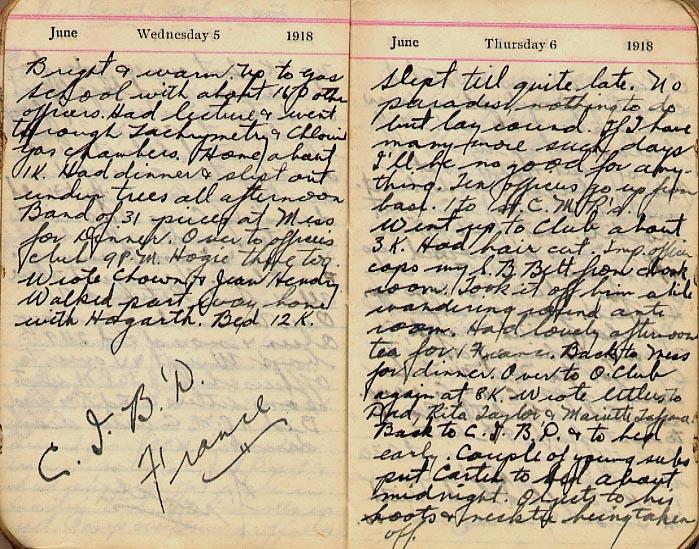 June Wednesday 5 1918
Bright & warm. Up to gas
school with about 160 other
officers. Had lecture & went
through Lachrymetry & Chlorine
gas chambers. Home about
1K. Had dinner & slept out
under trees all afternoon
Band of 31 pieces at Mess
for Dinner. Over to officers
club 9P.M. Hogie there too
Wrote Chown & Jean Hendry
Walked part way home
with Hogarth. Bed 12K.
C. I. B. D.
France
June Thursday 6 1918
Slept till quite late. No
parades, nothing to do
but lay around. If I have
many more such days
I'll be no good for any-
thing. Ten officers go up from
base. 1 to C. M. R's.
Went up to Club about
3K. Had hair cut. Imp. officer
cops my S. B. Belt from cloak
room. Took it off him while
wandering round ante
room. Had lovely afternoon
tea for 1 Franc. Back to Mess
for dinner. Over to O. Club
again at 8K. Wrote letters to
Dad, Rita Taylor & Mariette
Back to C. I. B. D. & to bed
early. Couple of young subs
put Carter to bed about
midnight. Objects to his
boots & necktie being taken
off.